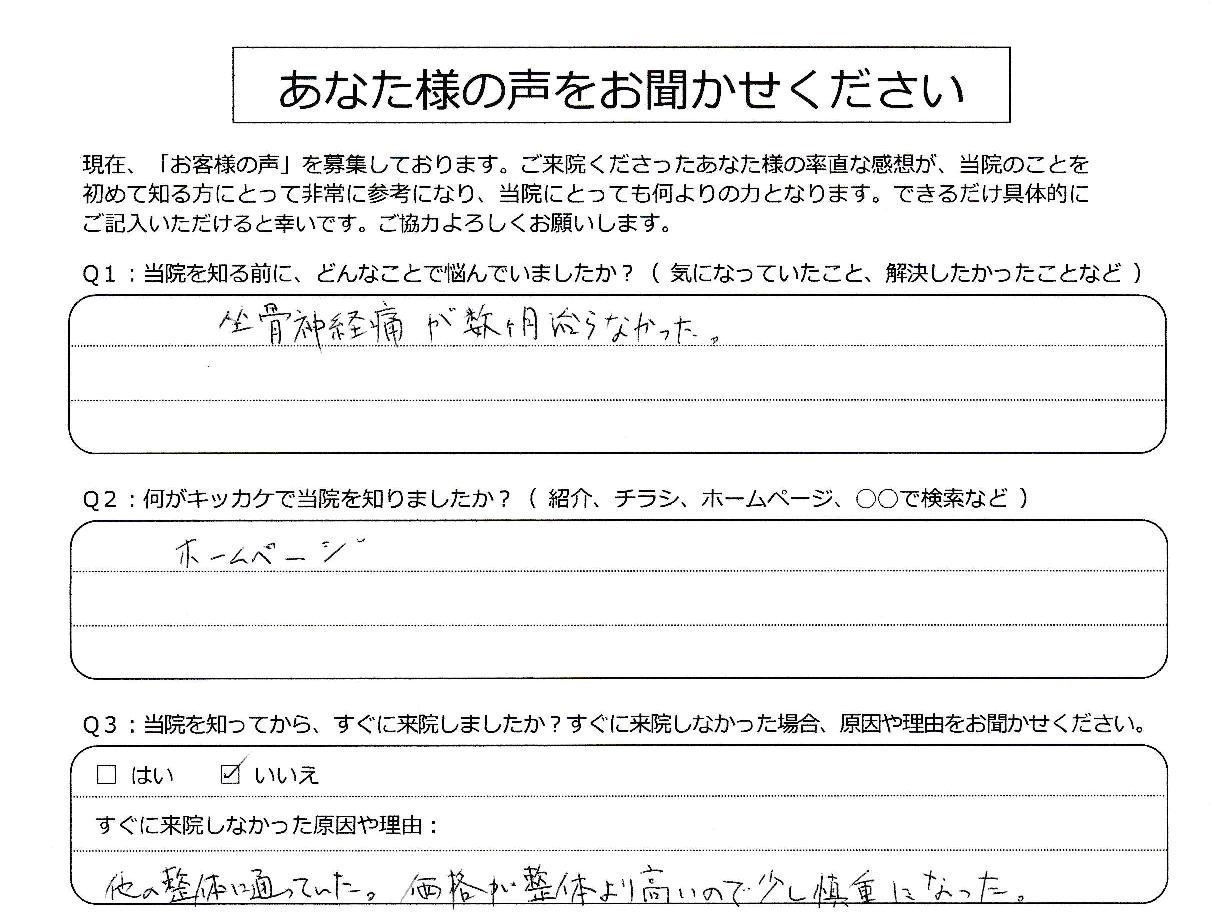 あなた様の声をお聞かせください
現在、「お客様の声」を募集しております。ご来院くださったあなた様の率直な感想が、当院のことを
初めて知る方にとって非常に参考になり、当院にとっても何よりの力となります。できるだけ具体的に
ご記入いただけると幸いです。ご協力よろしくお願いします。
Q1：当院を知る前に、どんなことで悩んでいましたか？（ 気になっていたこと、解決したかったことなど ）
坐骨神経痛が数ヶ月治らなかった。
Q2：何がキッカケで当院を知りましたか？（ 紹介、チラシ、ホームページ、○○で検索など ）
ホームページ
Q3：当院を知ってから、すぐに来院しましたか？すぐに来院しなかった場合、原因や理由をお聞かせください。
□ はい ☑ いいえ
すぐに来院しなかった原因や理由：
他の整体に通っていた。価格が整体より高いので少し慎重になった。